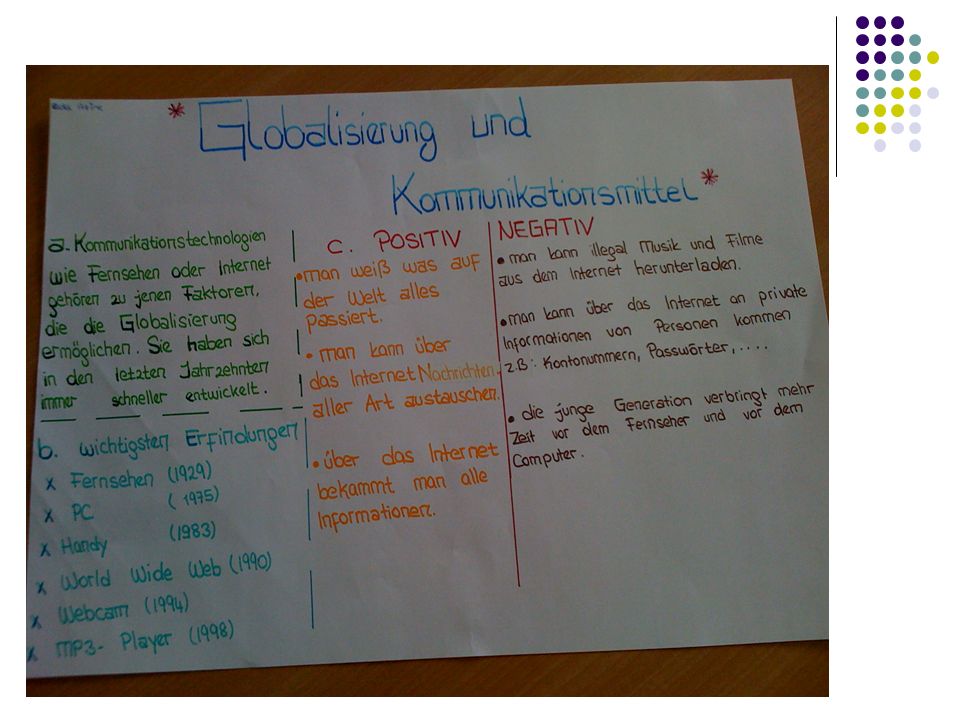 * Globalisierung und
Kommunikationsmittel *
a. Kommunikationstechnologien
wie Fernsehen oder Internet
gehören zu jenen Faktoren,
die die Globalisierung
ermöglichen. Sie haben sich
in den letzten Jahrzehnten
immer schneller entwickelt.
b. wichtigsten Erfindungen
x Fernsehen (1929)
x PC (1975)
x Handy (1983)
x World Wide Web (1990)
x Webcam (1994)
x MP3- Player (1998)
c. POSITIV
• man weiß was auf
der Welt alles
Passiert.
• man kann über
das Internet Nachrichten
aller Art austauschen.
• über das Internet
bekammt man alle
Informationen.
NEGATIV
• man kann illegal Musik und Filme
aus dem Internet herunterladen.
• man kann über das Internet an private
Informationen von Personen kommen
z.B: Kontonummern, Passwörter,....
• die junge Generation verbringt mehr
Zeit vor dem Fernseher und vor dem
Computer.